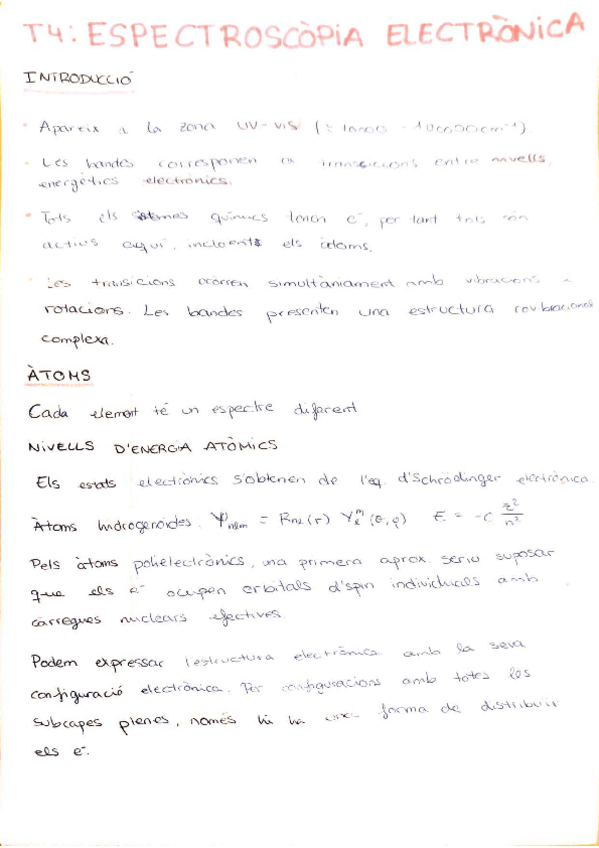 T4: ESPECTROSCÒPIA ELECTRÒNICA
INTRODUCCIÓ
Apareix a la zona UV-vis (≈ 10000 - 100.000 cm⁻¹).
Les bandes corresponen a transicions entre nivells
energètics electrònics.
Tots els sistemes químics tenen e⁻, per tant tots són
actius aquí, incloents els àtoms.
Les transicions ocorren simultàniament amb vibracions
rotacions. Les bandes presenten una estructura rovibracional
complexa.
ÀTOMS
Cada element té un espectre diferent
NIVELLS D'ENERGIA ATÒMICS
Els estats electrònics s'obtenen de l'eq. d'Schrödinger electrònica.
Àtoms hidrogenoides. Ψnlm = Rnl(r) Yₗᵐ(θ,φ) E = -C z²/n²
Pels àtoms polielectrònics, una primera aprox. seria suposar
que els e⁻ ocupen orbitals d'spin individuals amb
càrregues nuclears efectives.
Podem expressar l'estructura electrònica amb la seva
configuració electrònica. Per configuracions amb totes les
subcapes plenes, només hi ha una forma de distribuir
els e⁻.